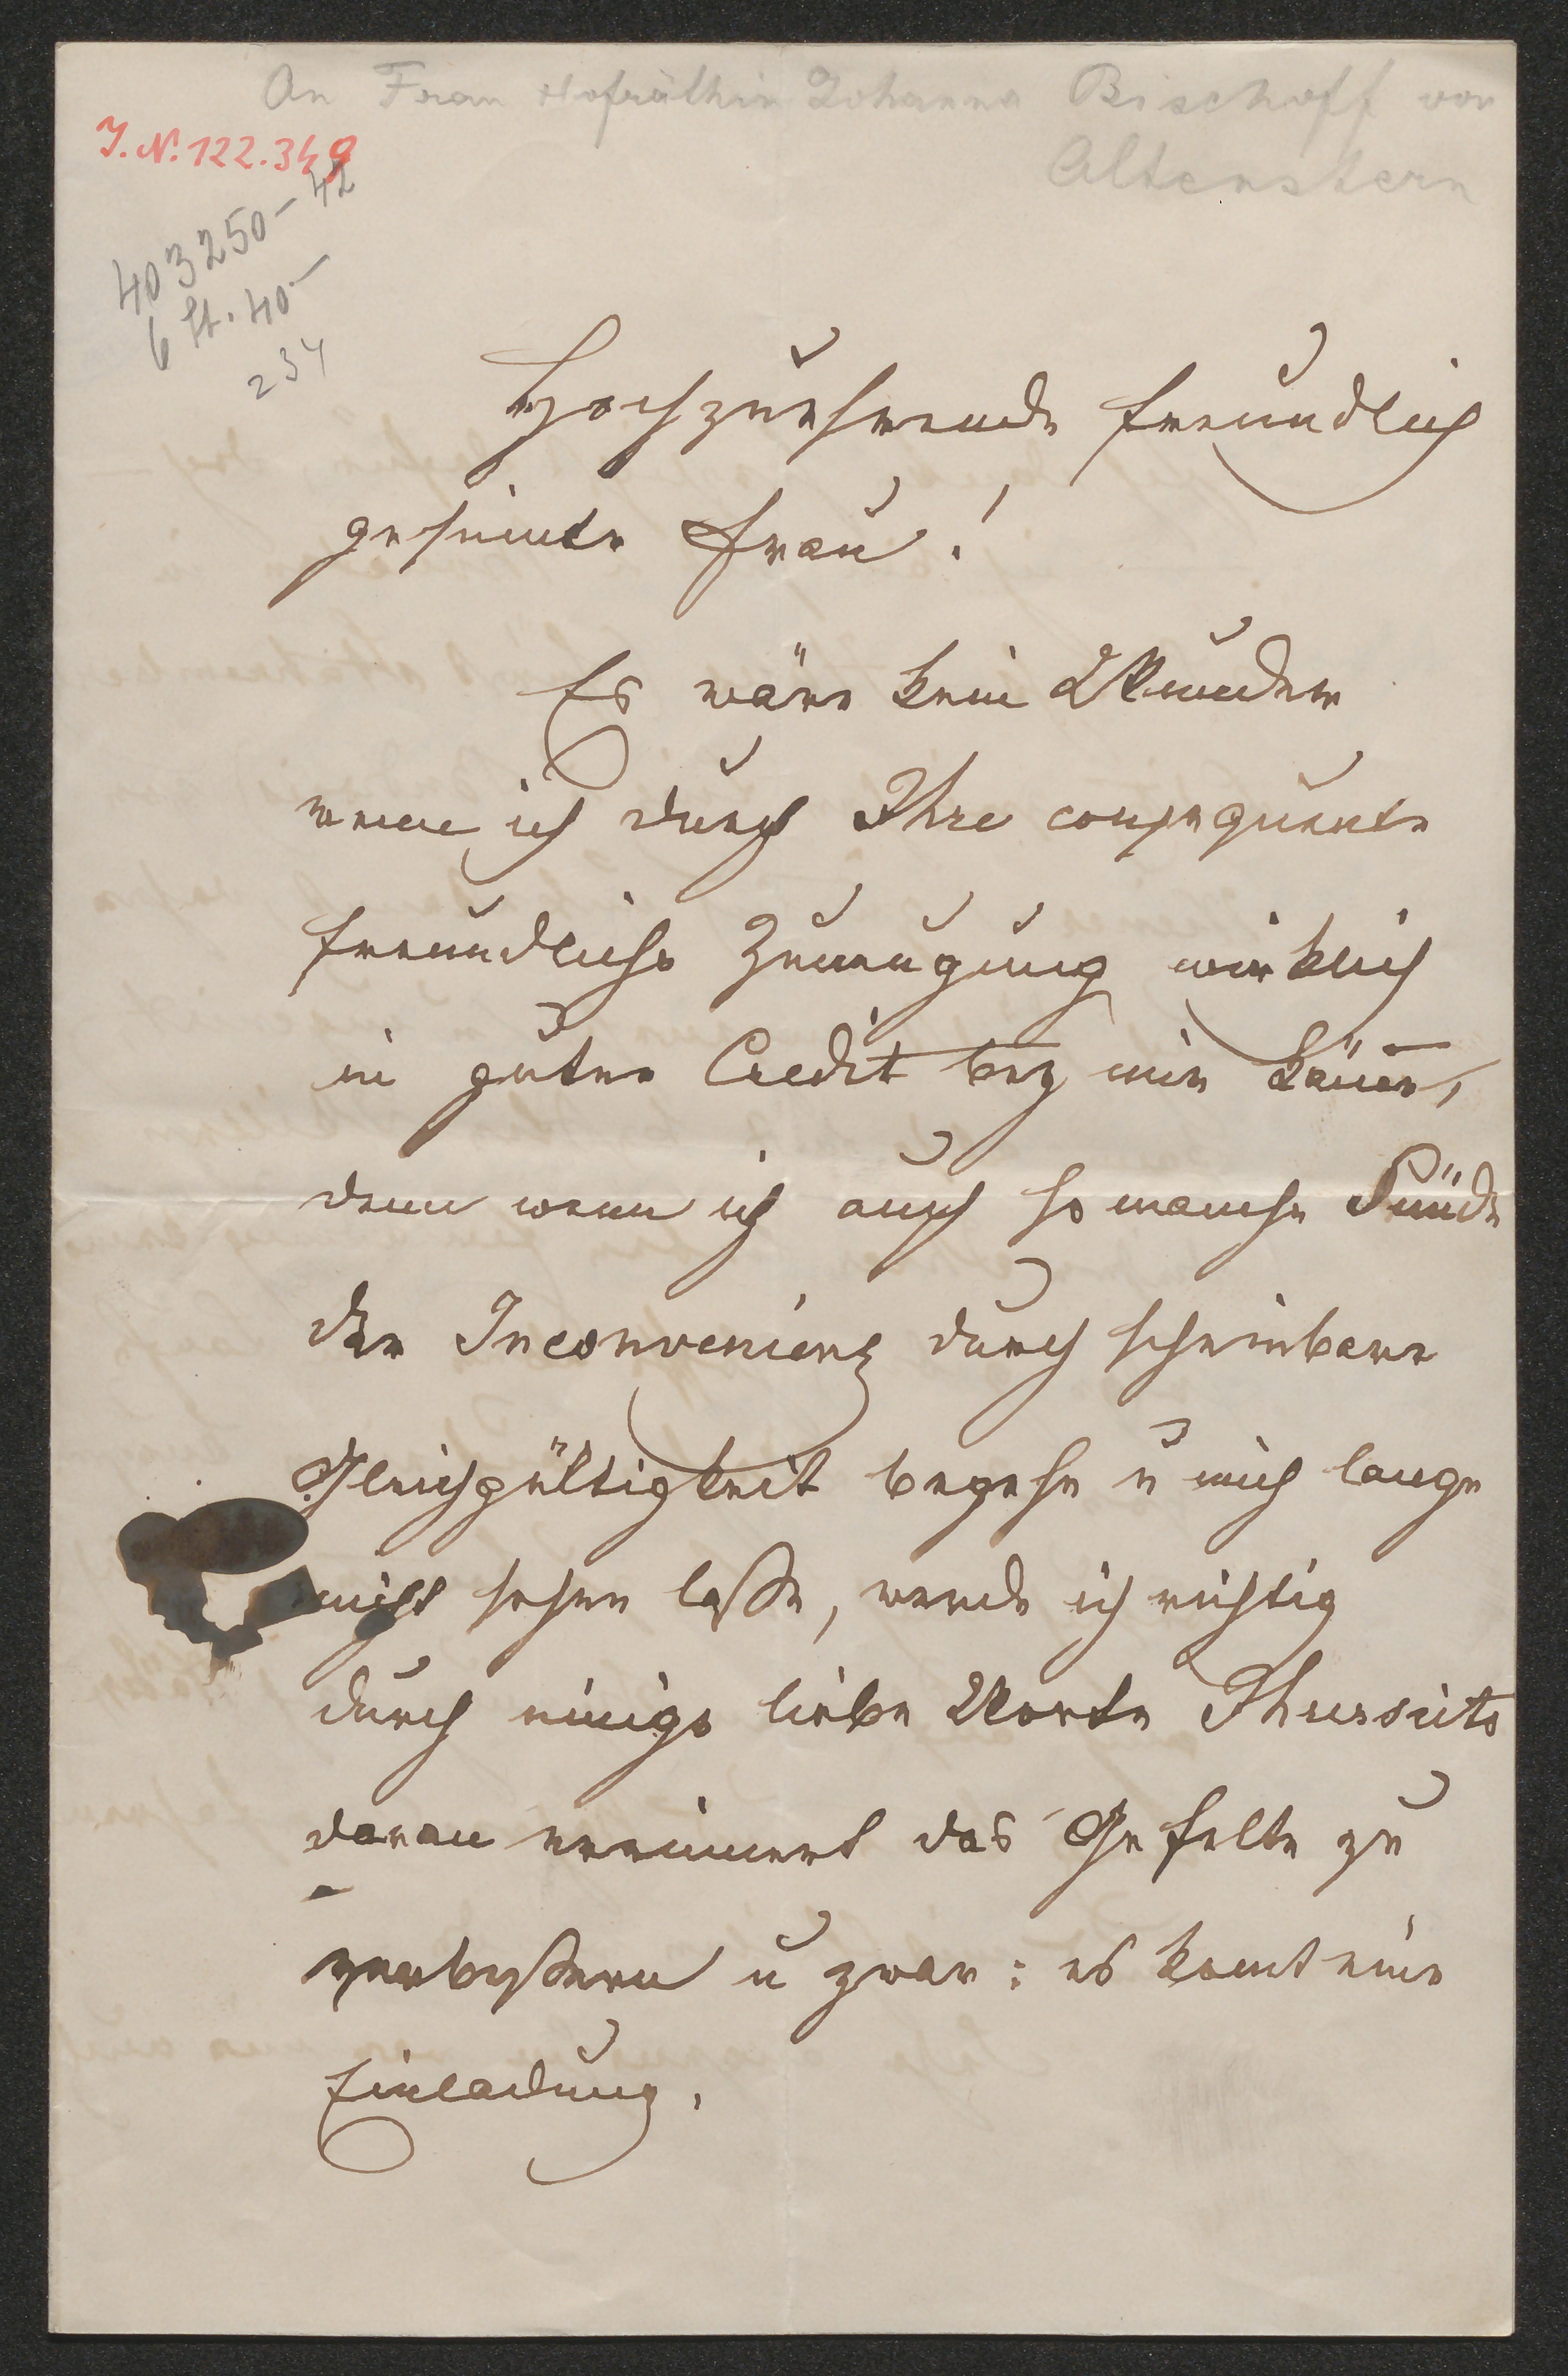 An Frau Hofräthin Johanna Bischoff von
Altenstern
I. N. 122.349
403250-42
6 St. 40-
234
Hochzuehrende freundlich
gesinnte Frau!
Es wäre kein Wunder
wenn ich durch Ihre consequente
freundliche Zuneigung wirklich
in guten Credit bey mir käme,
denn wenn ich auch so manche Sünde
der Inconvenienz durch scheinbare
Gleichgültigkeit begehe u mich lange
nicht sehen laße, werde ich richtig
durch einige liebe Worte Ihrerseits
daran erinnert das Gefehlte zu
verbeßern u zwar: es komt eine
Einladung.